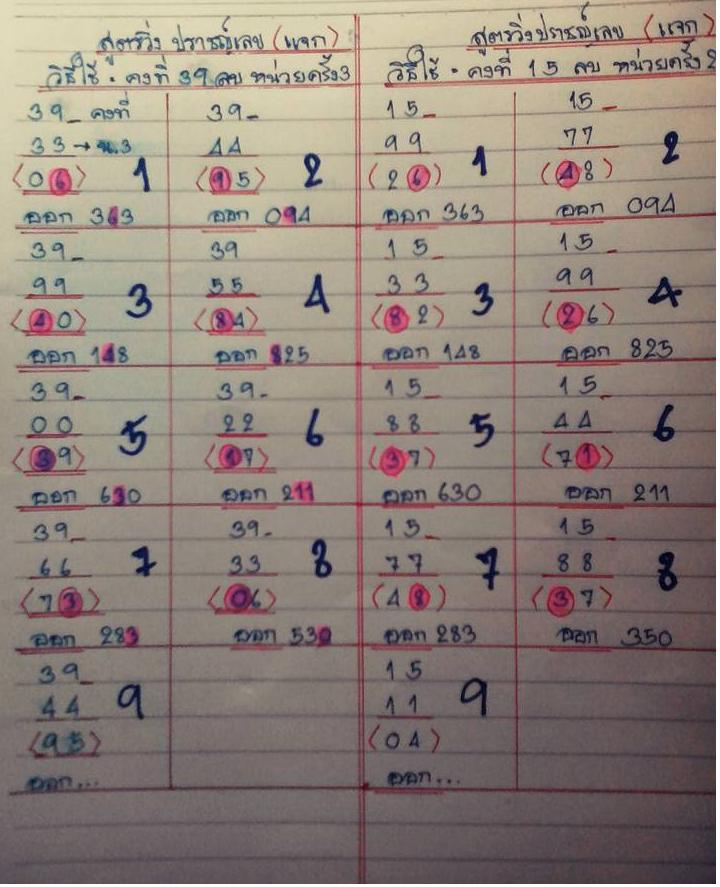 สูตรวิ่ง ปราชญ์เลข (แจก)
วิธีใช้ . คงที่ 39 ลบ หน่วยครั้ง3
39_ คงที่
33 → น.3
(06) 1
ออก 363
39_
44
(95) 2
ออก 094
39_
99
(40) 3
ออก 148
39
55
(84) 4
ออก 825
39_
00
(39) 5
ออก 630
39_
22
(17) 6
ออก 211
39_
66
(73) 7
ออก 283
39_
33
(06) 8
ออก 530
39_
44
(95) 9
ออก...
สูตรวิ่งปราชญ์เลข (แจก)
วิธีใช้ . คงที่ 15 ลบ หน่วยครั้ง2
15_
99
(26) 1
ออก 363
15_
77
(48) 2
ออก 094
15_
33
(82) 3
ออก 148
15_
99
(26) 4
ออก 825
15_
88
(37) 5
ออก 630
15_
44
(71) 6
ออก 211
15_
77
(48) 7
ออก 283
15
88
(37) 8
ออก 350
15
11
(04) 9
ออก...